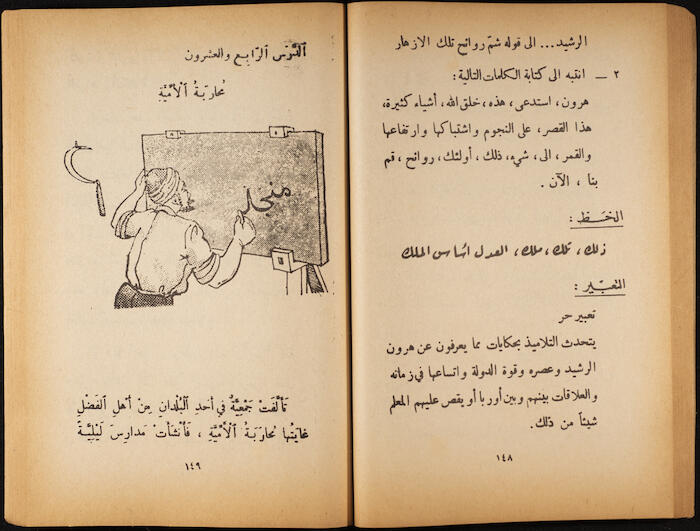 الرشيد... الى قوله شمّ روائح تلك الازهار
٢ — انتبه الى كتابة الكلمات التالية :
هرون، استدعى، هذه، خلق الله، أشياء كثيرة،
هذا القصر، على النجوم واشتباكها وارتفاعها
والقمر، الى، شيء، ذلك، أولئك، روائح، قم
بنا، الآن .
الخط :
ذلك، تلك، ملك، العدل اساس الملك
التعبير :
تعبير حر
يتحدث التلاميذ بحكايات مما يعرفون عن هرون
الرشيد وعصره وقوة الدولة واتساعها في زمانه
والعلاقات بينهم وبين أوربا أو يقص عليهم المعلم
شيئاً من ذلك.
١٤٨
الدَّرس الرّابع والعشرون
مُحاربَةُ الْأُمِّيَّةِ
منجل
تَأَلَّفَتْ جَمْعِيَّةٌ في أحَدِ البُلْدانِ مِنْ أهْلِ الفَضْلِ
غايَتُها مُحارَبَةُ الْأُمِّيَّةِ ، فَأَنْشَأَتْ مَدارِسَ لَيْلِيَّةً
١٤٩